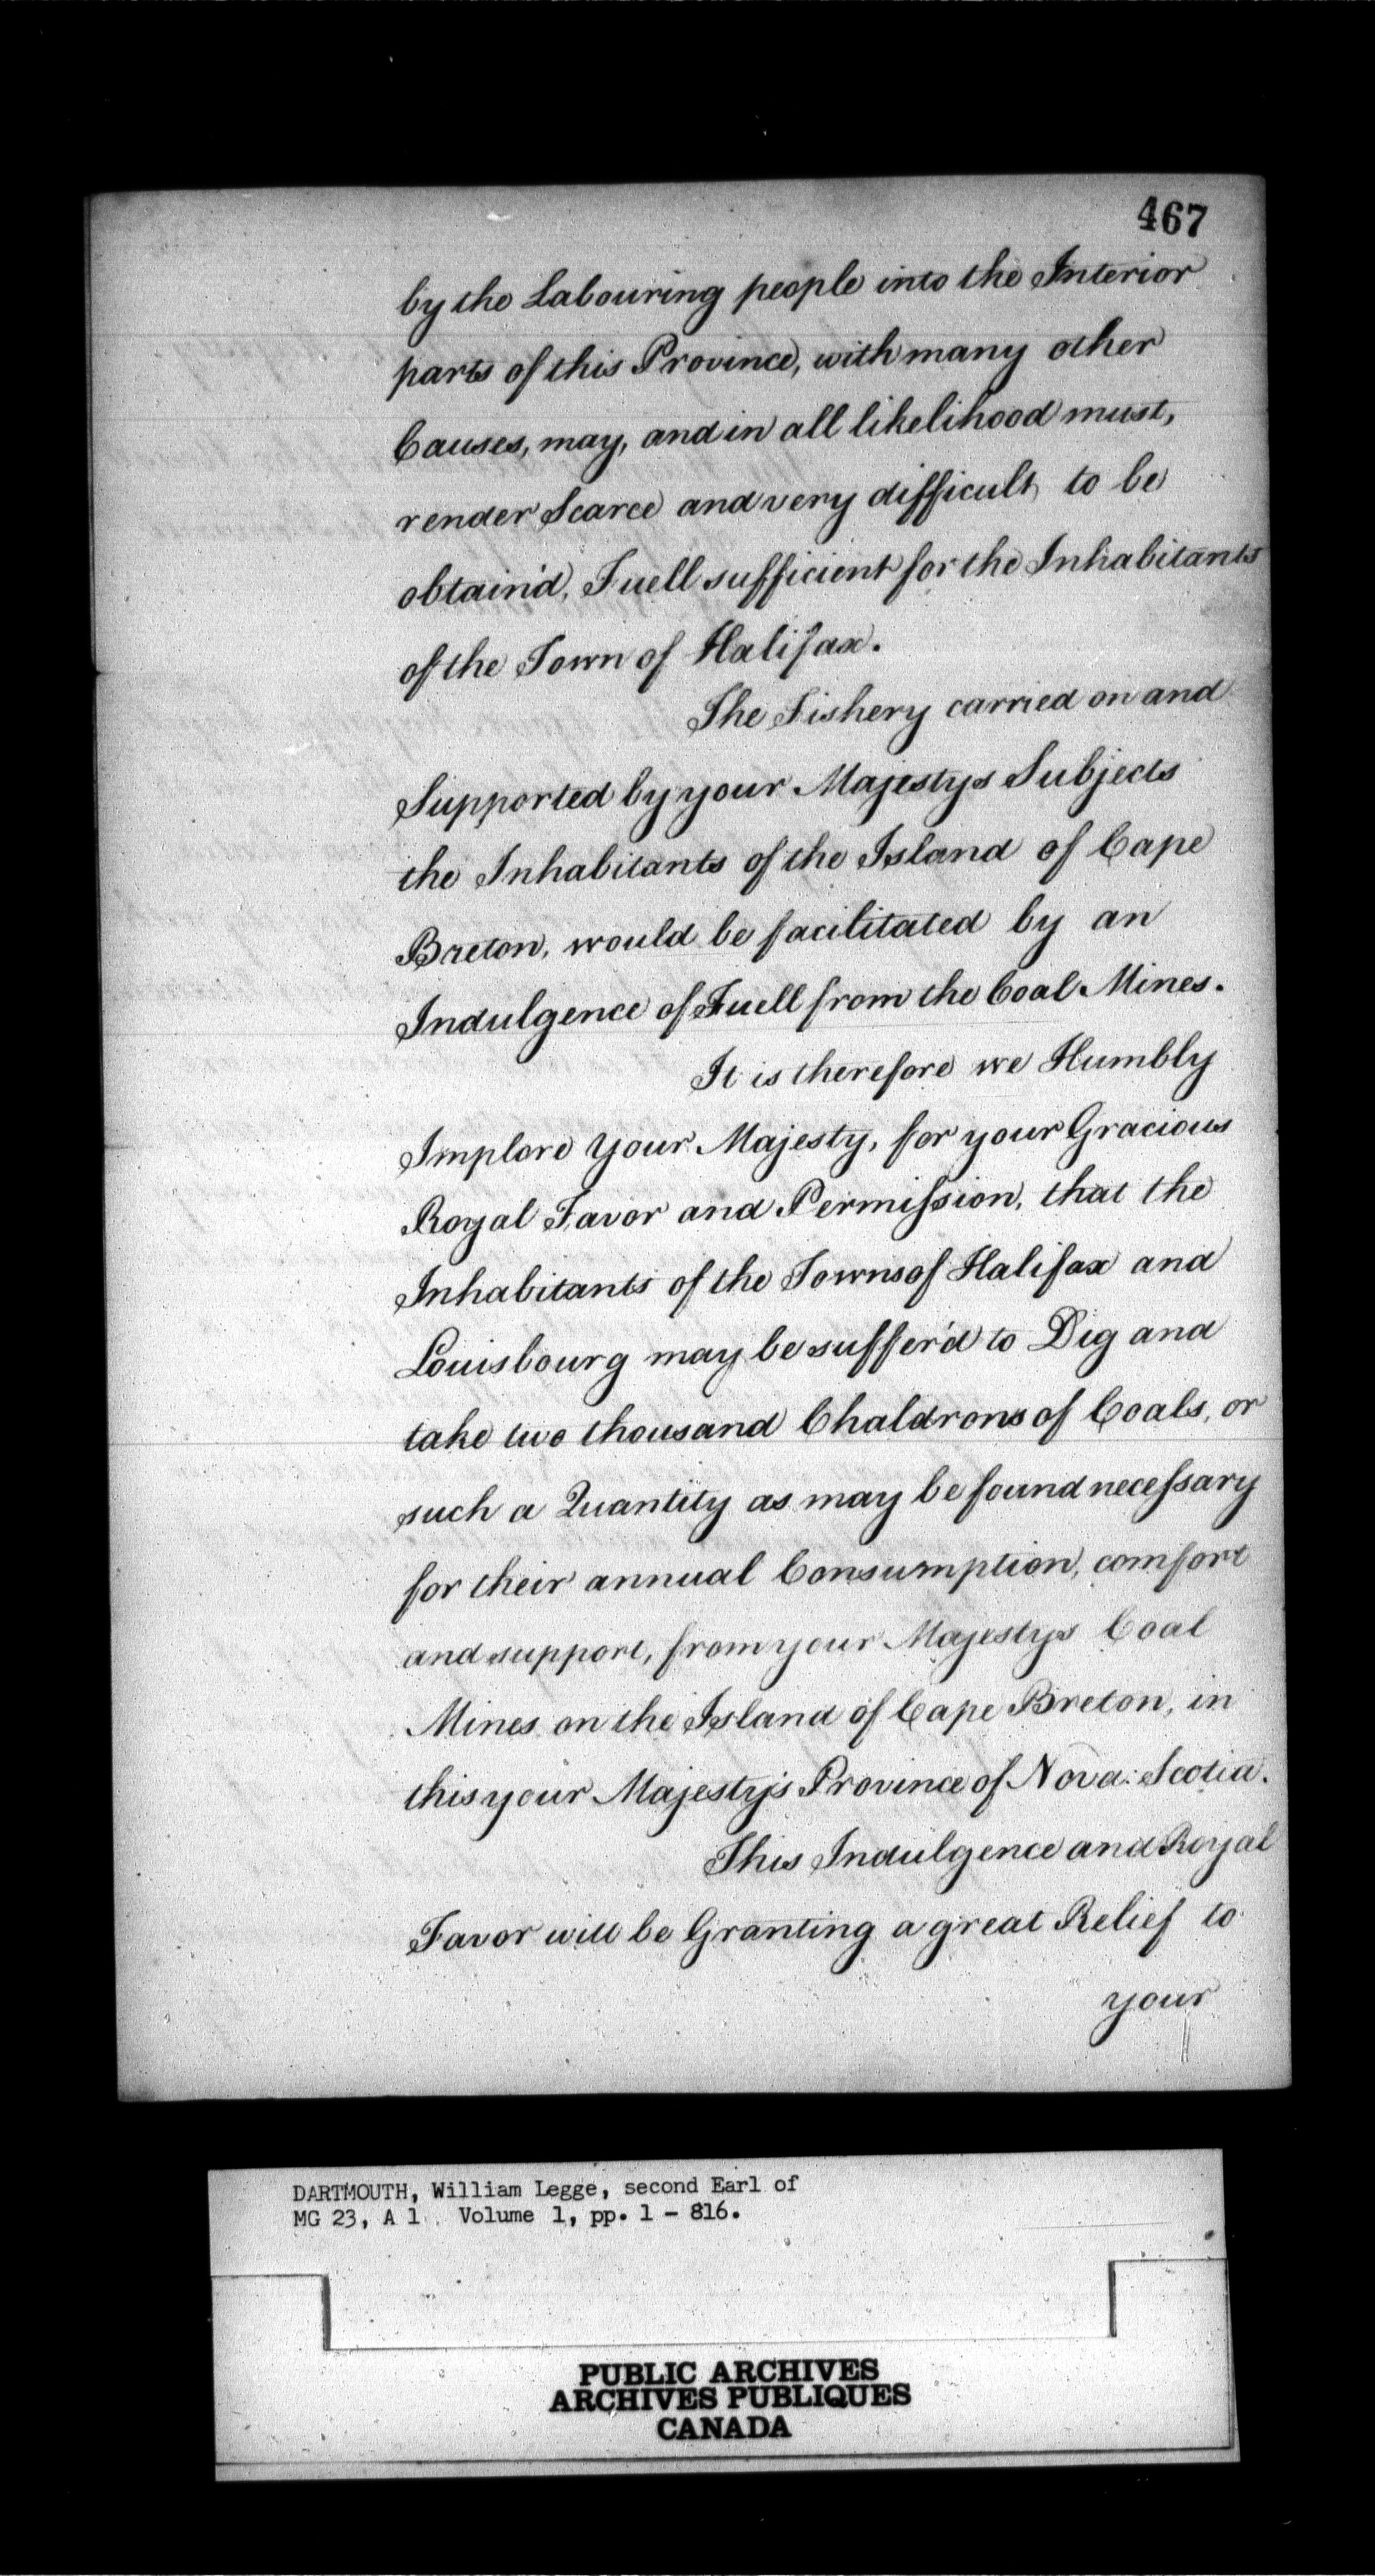 467
by the Labouring people into the Interior
parts of this Province, with many other
Causes, may, and in all likelihood must,
render Scarce and very difficult to be
obtain'd, Fuell sufficient for the Inhabitants
of the Town of Halifax.
The Fishery carried on and
Supported by your Majestys Subjects
the Inhabitants of the Island of Cape
Breton, would be facilitated by an
Indulgence of Fuell from the Coal Mines.
It is therefore we Humbly
Implore Your Majesty, for your Gracious
Royal Favor and Permission, that the
Inhabitants of the Towns of Halifax and
Louisbourg may be suffer'd to Dig and
take two thousand Chaldrons of Coals, or
such a Quantity as may be found necessary
for their annual Consumption, comfort
and support, from your Majestys Coal
Mines on the Island of Cape Breton, in
this your Majesty's Province of Nova: Scotia.
This Indulgence and Royal
Favor will be Granting a great Relief to
your
DARTMOUTH, William Legge, second Earl of
MG 23, A 1. Volume 1, pp. 1 - 816.
PUBLIC ARCHIVES
ARCHIVES PUBLIQUES
CANADA